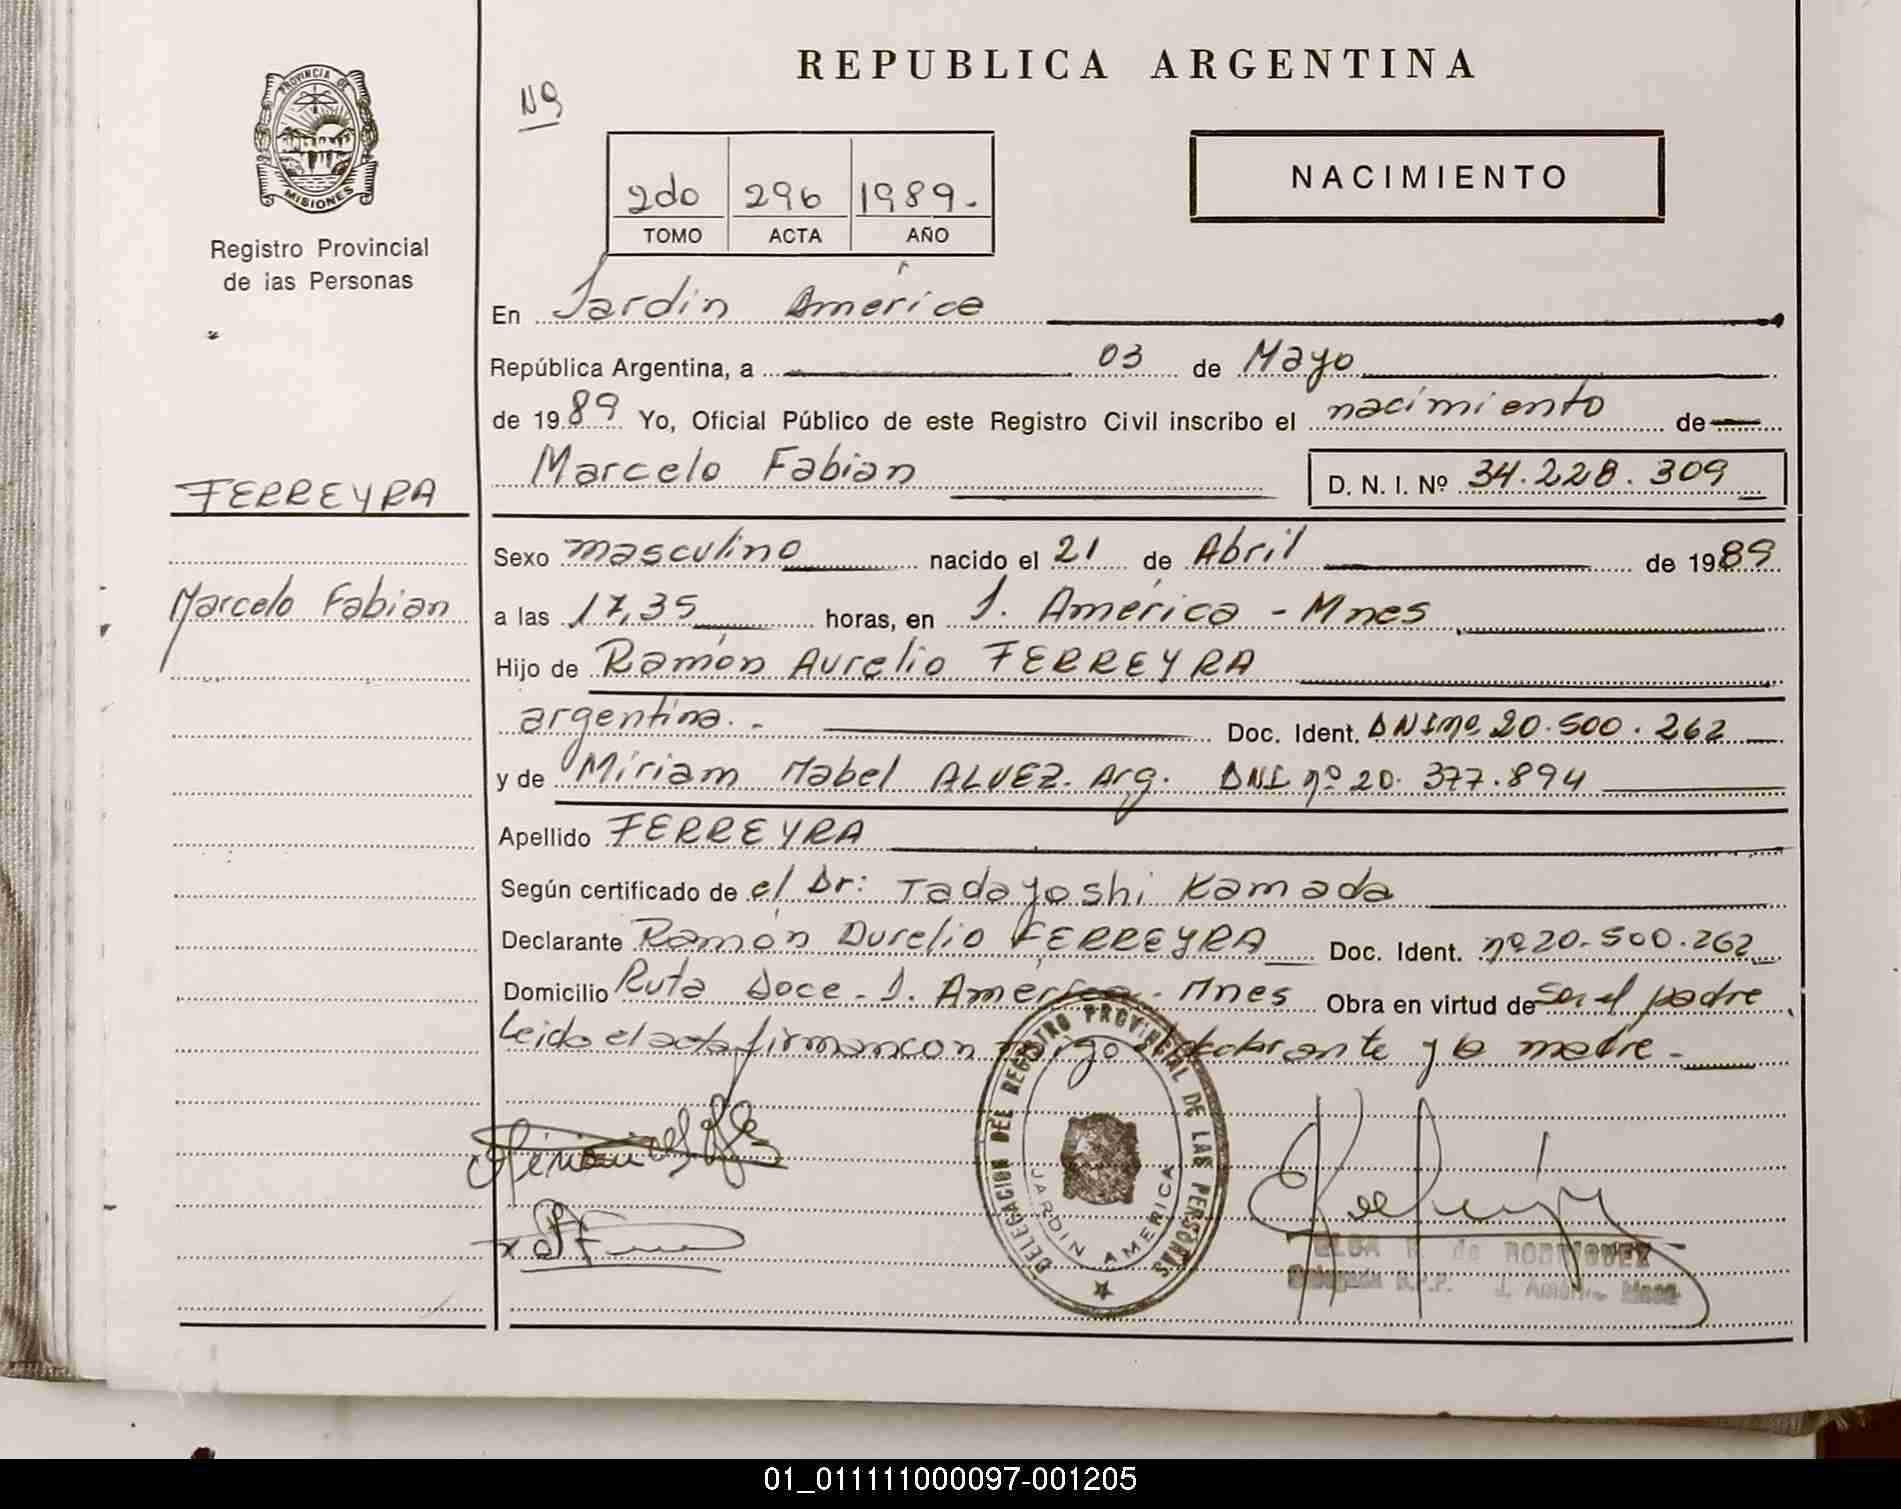 REPUBLICA ARGENTINA
PROVINCIA DE
MISIONES
Registro Provincial
de las Personas
Nº
2do 296 1989.-
TOMO ACTA AÑO
NACIMIENTO
En Jardin América
República Argentina, a 03 de Mayo
de 1989 Yo, Oficial Público de este Registro Civil inscribo el nacimiento de
Marcelo Fabian D. N. I. Nº 34.228.309
FERREYRA
Marcelo Fabian
Sexo masculino nacido el 21 de Abril de 1989
a las 17,35 horas, en J. América - Mnes
Hijo de Ramón Aurelio FERREYRA
argentina.- Doc. Ident. DNI nº 20.500.262
y de Miriam Mabel ALVEZ. Arg. DNI nº 20.377.894
Apellido FERREYRA
Según certificado de el Dr: Tadayoshi Kamada
Declarante Ramón Aurelio FERREYRA Doc. Ident. nº 20.500.262
Domicilio Ruta Doce - J. América - Mnes Obra en virtud de Ser el padre,
Leido el acta firman conmigo el declarante y la madre.-
DELEGACION DEL REGISTRO PROVINCIAL DE LAS PERSONAS
JARDIN AMERICA
ELSA de RODRIGUEZ
Delegada R.P.P. J. América Mnes
01_011111000097-001205